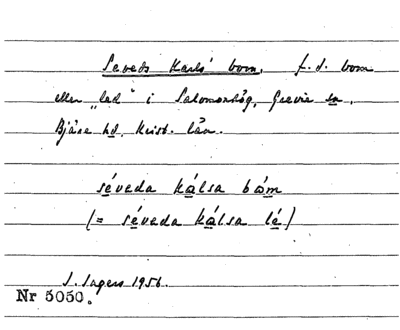 Seveds Karls' bom, f.d. bom
eller "led" i Salomonhög, Grevie sn,
Bjäre hd, Krist. län.
séveda kálsa bám
(= séveda kálsa lé)
S. Ingers 1956.
Nr 5050.